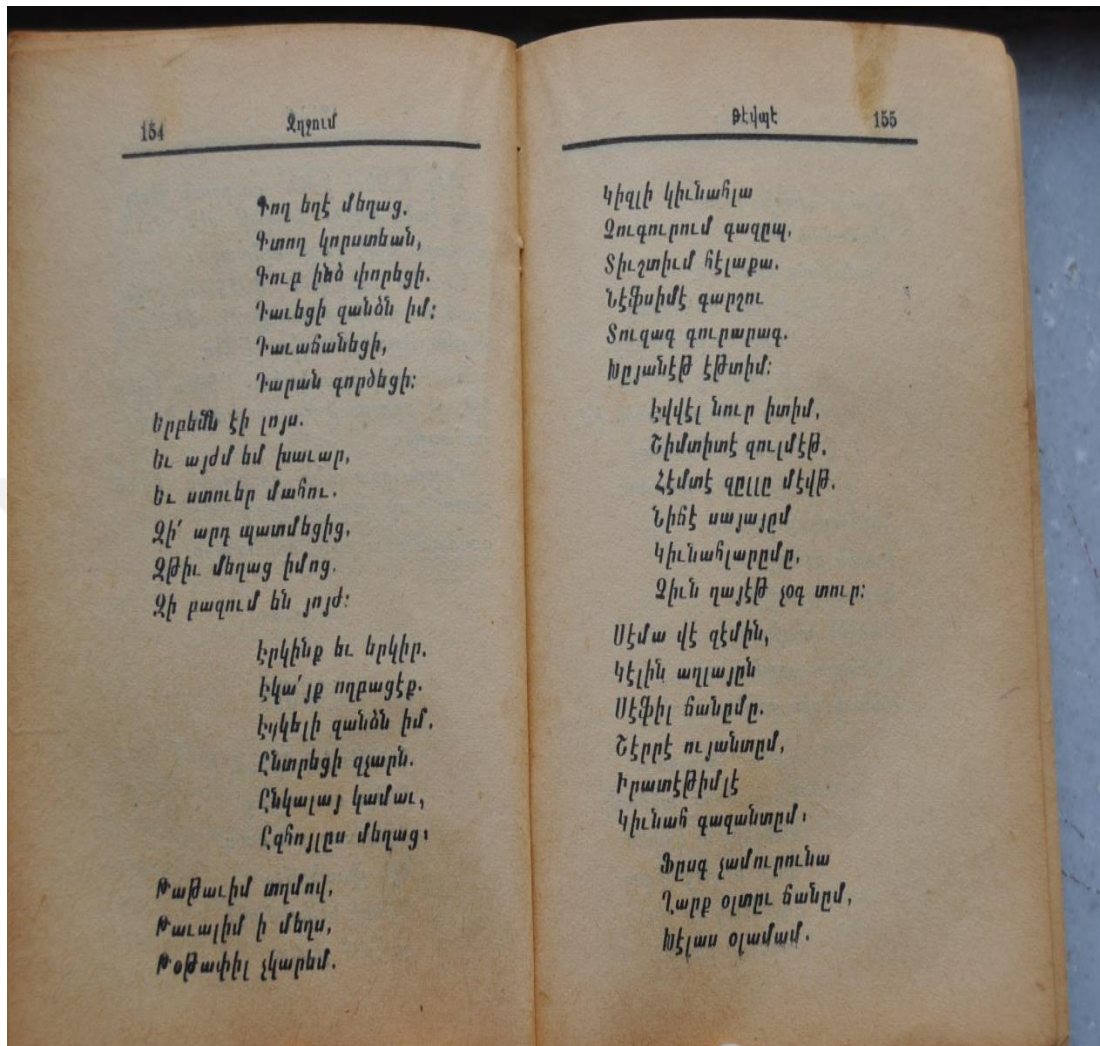 154 Զղջում
Գող եղէ մեղաց.
Գտող կորստեան,
Գուբ ինձ փորեցի.
Դաւեցի զանձն իմ:
Դաւաճանեցի,
Դարան գործեցի:
Երբեմն էի լոյս.
Եւ այժմ եմ խաւար,
Եւ ստուեր մահու.
Զի՛ արդ պատմեցից,
Զթիւ մեղաց իմոց.
Զի բազում են յոյժ:
Էրկինք եւ երկիր.
Էկա՛յք ողբացէք.
Էսկելի զանձն իմ.
Ընտրեցի զչարն.
Ընկալայ կամաւ,
Ըզհոյլըս մեղաց:
Թաթաւիմ տղմով,
Թաւալիմ ի մեղս,
Թօթափիլ չկարեմ.
Թէվպէ 155
Կիզլի կիւնահլա
Չուգուրում գազըպ,
Տիւշտիւմ հէլաքա.
Նէֆսիմէ գարշու
Տուզագ գուրարագ.
Խըյանէթ էթտիմ:
Էվվէլ նուր իտիմ,
Շիմտիտէ զուլմէթ.
Հէմտէ զըլլը մէվթ.
Նիճէ սայայըմ
Կիւնահլարըմը,
Զիւն ղայէթ չօգ տուր:
Սէմա վէ զէմին,
Կէլին աղլայըն
Սէֆիլ ճանըմը.
Շէրրէ ույանտըմ,
Իրատէթիմլէ
Կիւնահ գազանտըմ:
Ֆըսգ չամուրունա
Ղարք օլտըւ ճանըմ,
Խէլաս օլամամ.